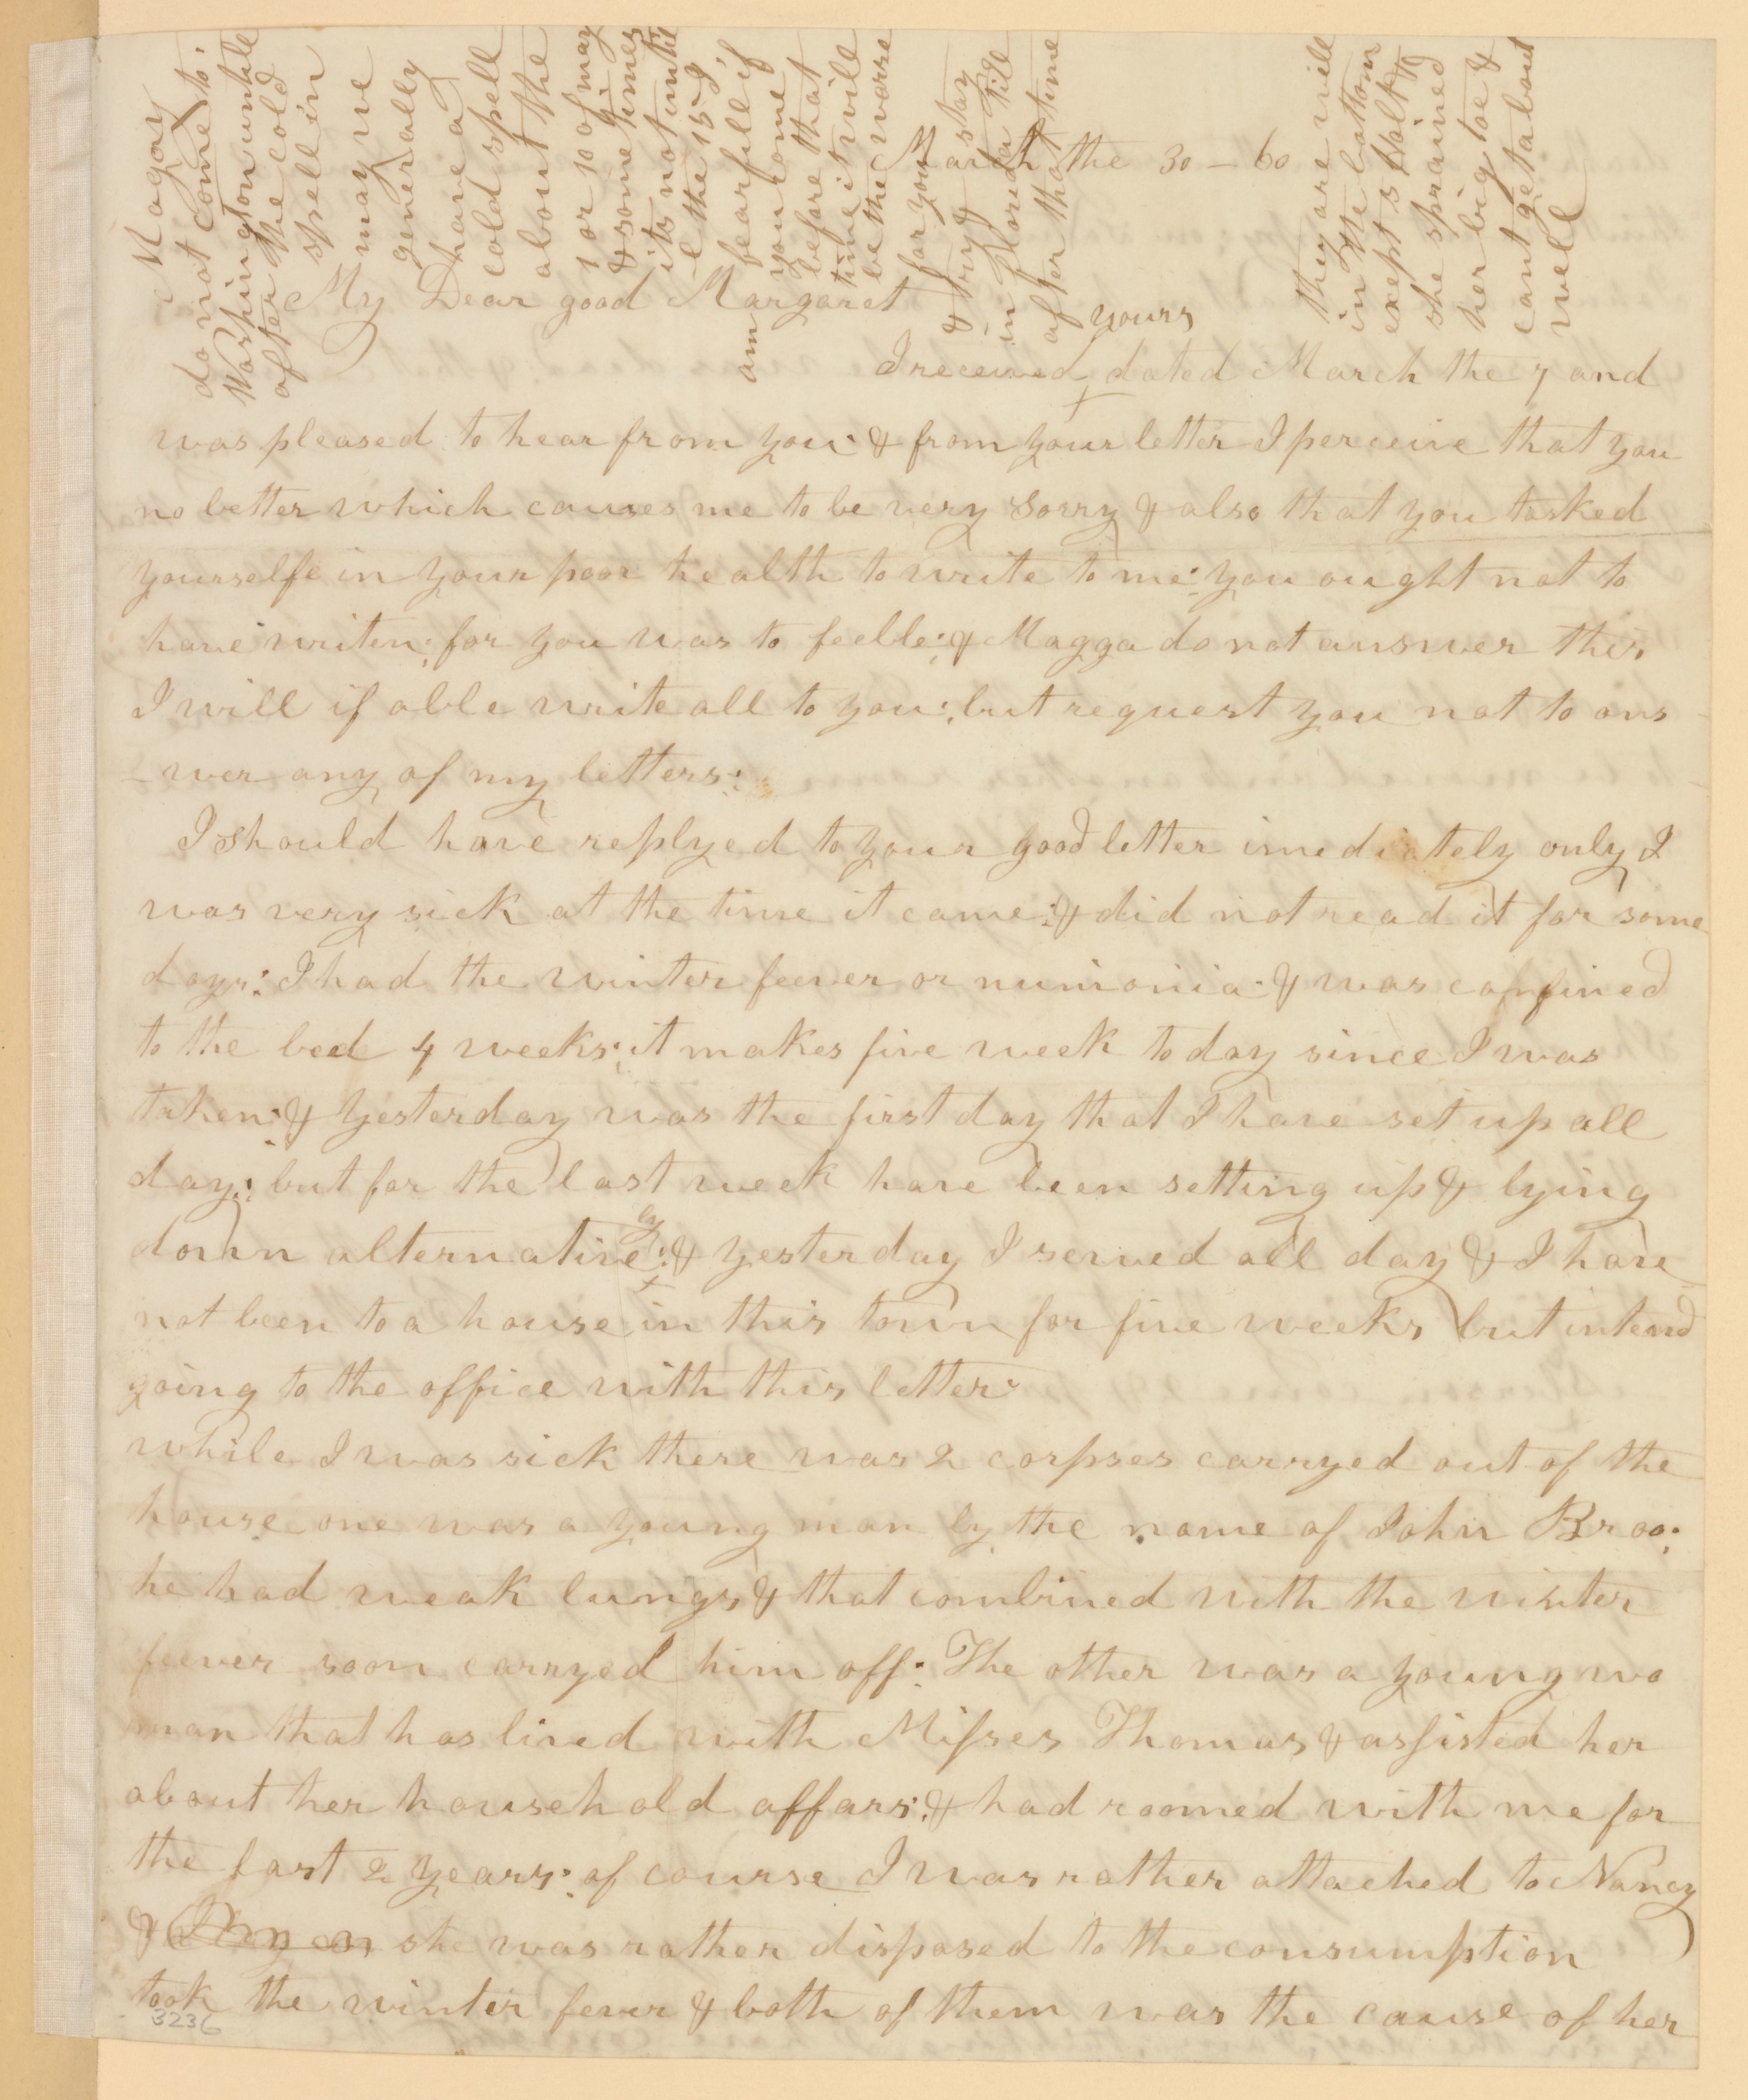 March the 30 – 60
My Dear good Margaret
yours
I received dated March the 7 and
was pleased to hear from you: & from your letter I perceive that you
no better which causes me to be very sorry & also that you tasked
yourselfe in your poor health to write to me: you ought not to
have writen: for you was to feeble: & Magga do not answer this
I will if able write all to you: but request you not to ans
-wer any of my letters:
I should have replyed to your good letter imediately only I
was very sick at the time it came: & did not read it for some
days: I had the winter feever or numionia: & was confined
to the bed 4 weeks: it makes five week to day since I was
taken: & yesterday was the first day that I have set up all
day: but for the last week have been setting up & lying
ly
down alternative: & yesterday I served all day & I have
not been to a house in this town for five weeks but intend
going to the office with this letter:
while I was sick there was 2 corpses carryed out of the
house one was a young man by the name of John Broo:
he had weak lungs & that combined with the winter
feever soon carryed him off: The other was a young wo
man that has lived with Misses Thomas & assisted her
about her household affars: & had roomed with me for
the last 2 years: of course I was rather attached to Nancy
& she was rather disposed to the consumption
took the winter fever & both of them was the cause of her
3236
Magay
do not come to
Washington untill
after the cold
spell in
may we
generally
have a
cold spell
about the
1 or 10 of may
& some times
its not until
l the 15th,
am fearfull if
you come
before that
time it will
be the worse
for you stay
& try
in Florida till
after that time
they are well
in the bottom
exept s Holt
she sprained
her big toe &
cant get about
well